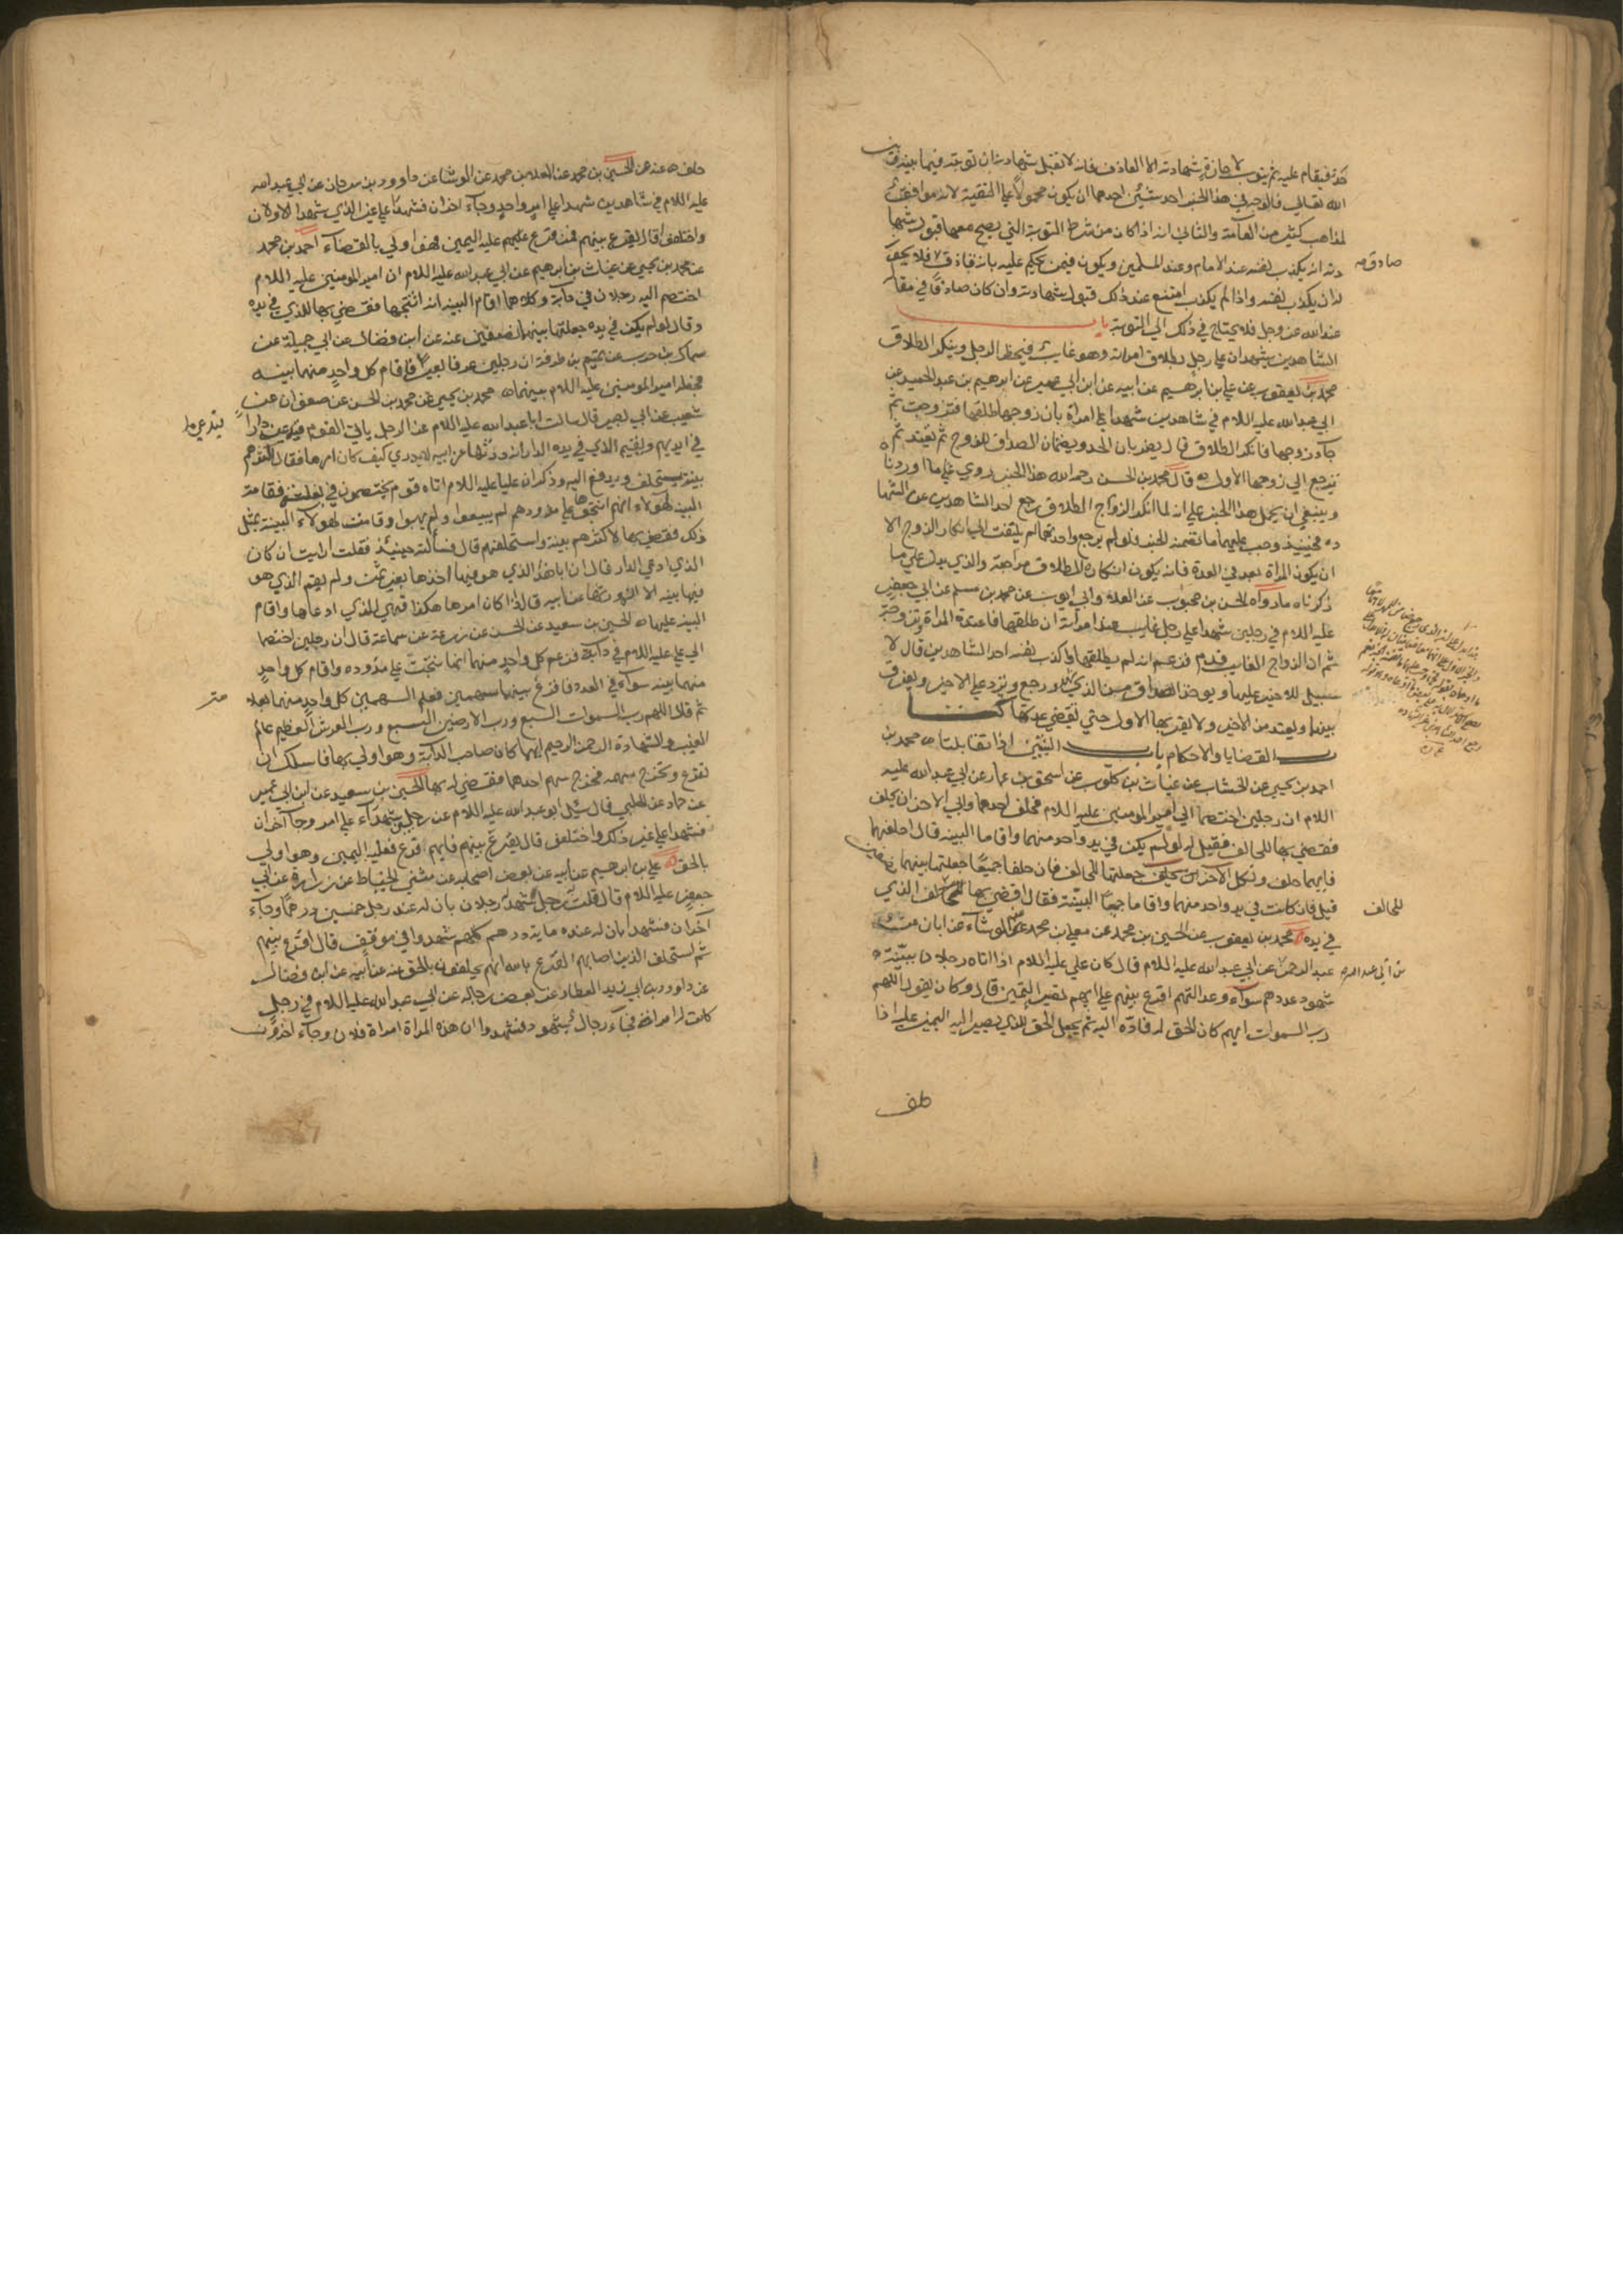 حد فيقام عليه ثم يتوب الا جازت شهادته الا القاذف فانه لا تقبل شهادته ان توبته فيما بينه وبين
الله تعالي فالوجه في هذا الخبر احد شيئين احدهما ان يكون محمولا علي التقية لانه موافق
لمذاهب كثير من العامة والثاني انه اذا كان من شرط التوبة التي يصح معها قبول شها
دته ان يكذب نفسه عند الامام وعند المسلمين ويكون فيمن يحكم عليه بانه قاذف فلا يجوز
له ان يكذب نفسه واذا لم يكذب امتنع عند ذلك قبول شهادته وان كان صادقا في مقا
عند الله عز وجل فلا يحتاج في ذلك الي التوبة باب
الشاهدين يشهدان علي رجل بطلاق امراته وهو غايب فيحضر الرجل وينكر الطلاق
محمد بن يعقوب عن علي بن ابرهيم عن ابيه عن ابن ابي عمير عن ابرهيم بن عبد الحميد عن
ابي عبد الله عليه السلام في شاهدين شهدا علي امرأة بان زوجها طلقها فتزوجت ثم
جآء زوجها فانكر الطلاق قال يضربان الحد ويضمنان الصداق للزوج ثم تعتد ثم
ترجع الي زوجها الاول قال محمد بن الحسن رحمه الله هذا الخبر روي علي ما اوردنا
وينبغي ان يحمل هذا الخبر علي انه لما انكر الزواج الطلاق رجع احد الشاهدين عن الشها
ده فحينئذ وجب عليهما ما تضمنه الخبر فلو لم يرجع واحد منهما لم يلتفت الي انكار الزوج الا
ان يكون المراة بعد في العدة فانه يكون انكاره الطلاق مراجعة والذي يدل علي ما
ذكرناه مارواه الحسن بن محبوب عن العلاء وابي ايوب عن محمد بن مسلم عن ابي جعفر
عليه السلام في رجلين شهدا علي رجل غايب عند امراته ان طلقها فاعتدت المراة وتزوجت
ثم ان الزواج الغايب قدم فزعم انه لم يطلقها واكذب نفسه احد الشاهدين قال لا
سبيل للاخير عليها ويوخذ الصداق من الذي شهد ورجع ويرد علي الاخير ويفرق
بينهما وتعتد من الاخير ولا يقربها الاول حتي تنقضي عدتها كتا
ب القضايا والاحكام باب البينتين اذا تقابلتا محمد بن
احمد بن يحيي عن الخشاب عن غياث بن كلوب عن اسحق بن عمار عن ابي عبد الله عليه
السلام ان رجلين اختصما الي امير المومنين عليه السلام فحلف احدهما وابي الاخر ان يحلف
فقضي بها للحالف فقيل له لو لم يكن في يد واحد منهما واقاما البينه قال احلفهما
فايهما حلف ونكل الاخر جعلتها للحالف فان حلفا جميعا جعلتها بينهما نصفين
قيل فان كانت في يد واحد منهما واقاما جميعا البينة فقال اقضي بها للحالف الذي
في يده محمد بن يعقوب عن الحسين بن محمد عن معلي بن محمد عن الوشآء عن ابان عن
عبد الرحمن عن ابي عبد الله عليه السلام قال كان علي عليه السلام اذا اتاه رجلان ببينة
شهود عددهم سوآء وعدالتهم اقرع بينهم علي ايهم تصير اليمين قال وكان يقول اللهم
رب السموات ايهم كان الحق له فاده اليه ثم يجعل الحق للذي يصير اليه اليمين عليه اذا
صادق
للحالف
بن ابي عبد الله
حلف
حلف عنه عن الحسين بن محمد عن المعلا بن محمد عن الوشا عن داوود بن سرحان عن ابي عبد الله
عليه السلام في شاهدين شهدا علي امر واحد وجآء اخران فشهدا علي غير الذي شهدا الاولان
واختلفوا قال يقرع بينهم فمن قرع عليهم عليه اليمين فهو اولي بالقضآء احمد بن محمد
عن محمد بن يحيي عن غياث بن ابرهيم عن ابي عبد الله عليه السلام ان امير المومنين عليه السلام
اختصم اليه رجلان في دابة وكلاهما اقام البينه انه انتجها فقضي بها للذي في يده
وقال لو لم يكن في يده جعلتها بينهما نصفين عنه عن ابن فضال عن ابي جميلة عن
سماك بن حرب عن تميم بن طرفة ان رجلين عرفا بعيرا فاقام كل واحد منهما بينه
فجعله امير المومنين عليه السلام بينهما محمد بن يحيي عن محمد بن الحسن عن صفوان عن
شعيب عن ابي بصير قال سالت ابا عبد الله عليه السلام عن الرجل ياتي القوم فيدعي دارا
في ايديهم ويقيم الذي في يده الدار انه ورثها عن ابيه لا يدري كيف كان امرها فقال اكثرهم
بينة يستحلف ويدفع اليه وذكر ان عليا عليه السلام اتاه قوم يختصمون في بغلة فقامت
البينه لهولاء انهم انتجوها علي مذودهم لم يبيعوا ولم يهبوا وقامت لهولاء البينة بمثل
ذلك فقضي بها لاكثرهم بينة واستحلفهم قال فسألته حينئذ فقلت ارايت ان كان
الذي ادعي الدار قال ان ابا هذا الذي هو فيها اخذها بغير ثمن ولم يقم الذي هو
فيها بينه الا انه ورثها عن ابيه قال اذا كان امرها هكذا فهي للذي ادعاها واقام
البينه عليها الحسين بن سعيد عن الحسن عن زرعة عن سماعة قال ان رجلين اختصما
الي علي عليه السلام في دآبة فزعم كل واحد منهما انها نتجت علي مذوده واقام كل واحد
منهما بينه سوآء في العدد فاقرع بينهما سهمين فعلم السهمين كل واحد منهما بعلامة
ثم قال اللهم رب السموات السبع ورب الارضين السبع ورب العرش العظيم عالم
الغيب والشهادة الرحمن الرحيم ايهما كان صاحب الدآبة وهو اولي بها فاسلك ان
تقرع وتخرج سهمه فخرج سهم احدهما فقضي له بها الحسين بن سعيد عن ابن ابي عمير
عن حماد عن الحلبي قال سئل ابو عبد الله عليه السلام عن رجلين شهدآء علي امر وجآ آخران
فشهدا علي غير ذلك واختلفوا قال يقرع بينهم فايهم قرع فعليه اليمين وهو اولي
بالحق علي بن ابرهيم عن ابيه عن بعض اصحابه عن مثني الحناط عن زرارة عن ابي
جعفر عليه السلام قال قلت رجل شهد له رجلان بان له عند رجل خمسين درهما وجآء
آخران فشهدا بان له عنده ماية درهم كلهم شهدوا في موقف قال اقرع بينهم
ثم استحلف الذين اصابهم القرع بالله انهم يحلفون بالحق عنه عن ابيه عن ابن فضال
عن داود بن ابي يزيد العطار عن بعض رجاله عن ابي عبد الله عليه السلام في رجل
كانت له امراة فجآء رجال بشهود فشهدوا ان هذه المراة امراة فلان وجآء اخرون